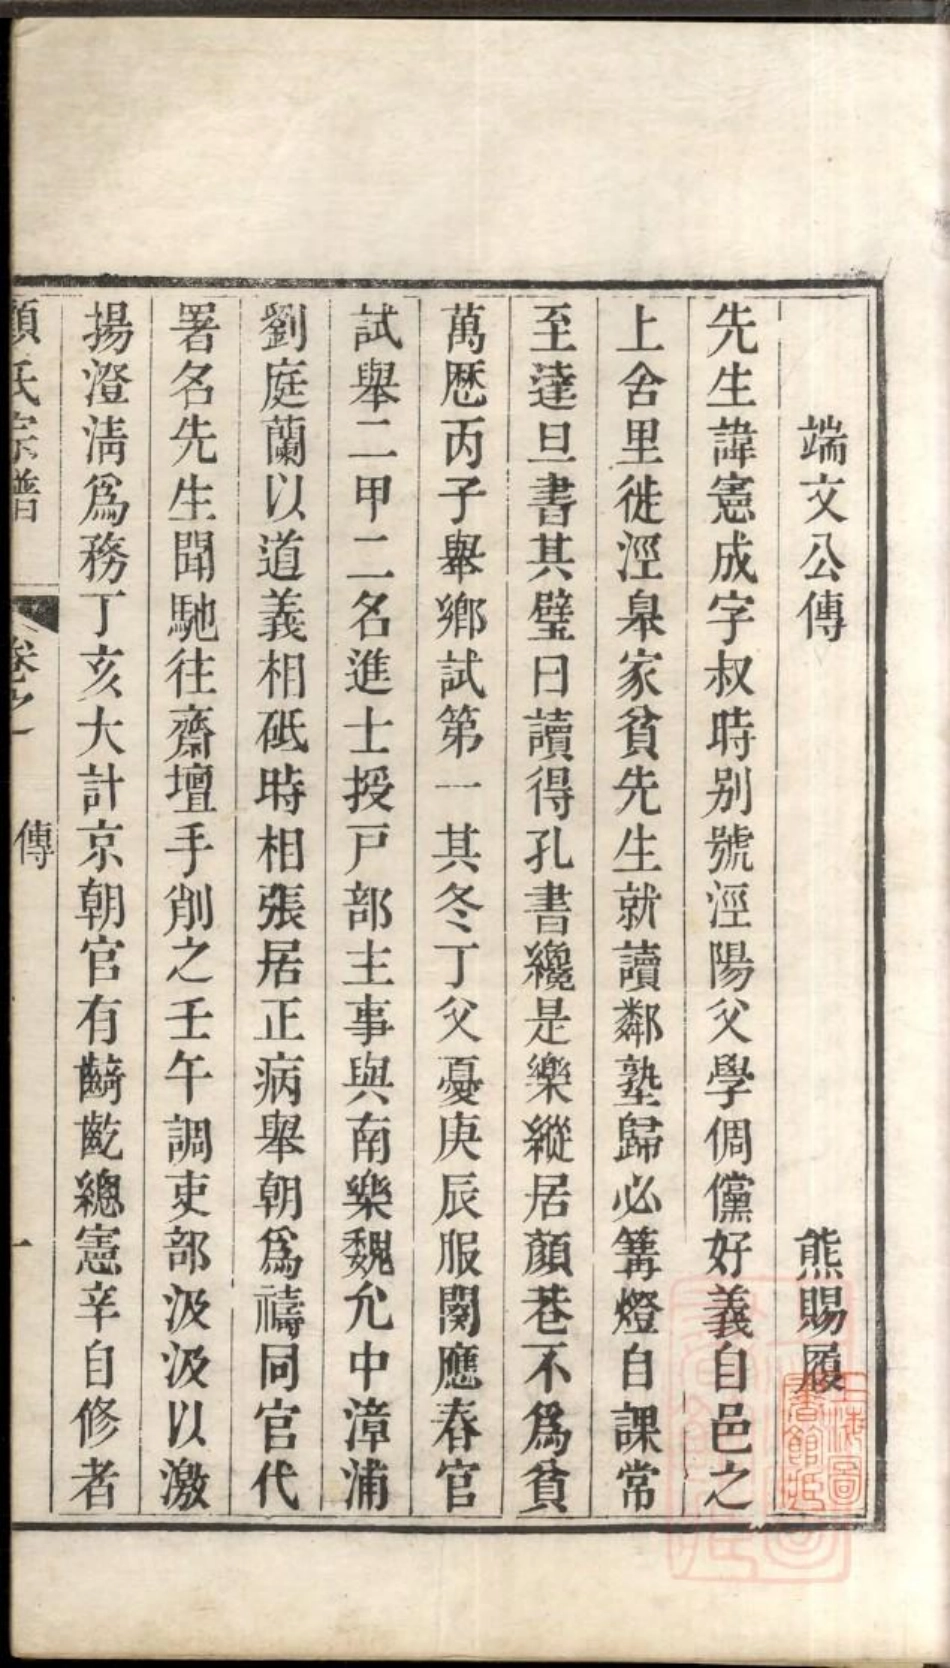 端文公傳　熊賜履
先生諱憲成字叔時别號涇陽父學倜儻好義自邑之
上舍里徙涇臯家貧先生就讀鄰塾歸必篝燈自課常
至達旦書其壁曰讀得孔書纔是樂縱居顏巷不爲貧
萬歷丙子舉鄉試第一其冬丁父憂庚辰服闋應春官
試舉二甲二名進士授戸部主事與南樂魏允中漳浦
劉庭蘭以道義相砥時相張居正病舉朝爲禱同官代
署名先生聞馳往齋壇手削之壬午調吏部汲汲以激
揚澄淸爲務丁亥大計京朝官有齮齕總憲辛自修者
顧氏宗譜　卷之一　傳　一
上海圖書館藏